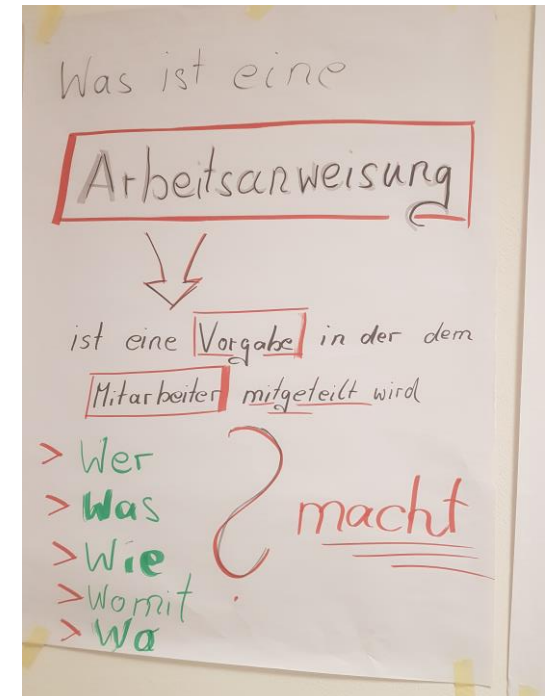 Was ist eine
Arbeitsanweisung
ist eine Vorgabe in der dem
Mitarbeiter mitgeteilt wird
> Wer
> Was
> Wie
> Womit
> Wo
? macht